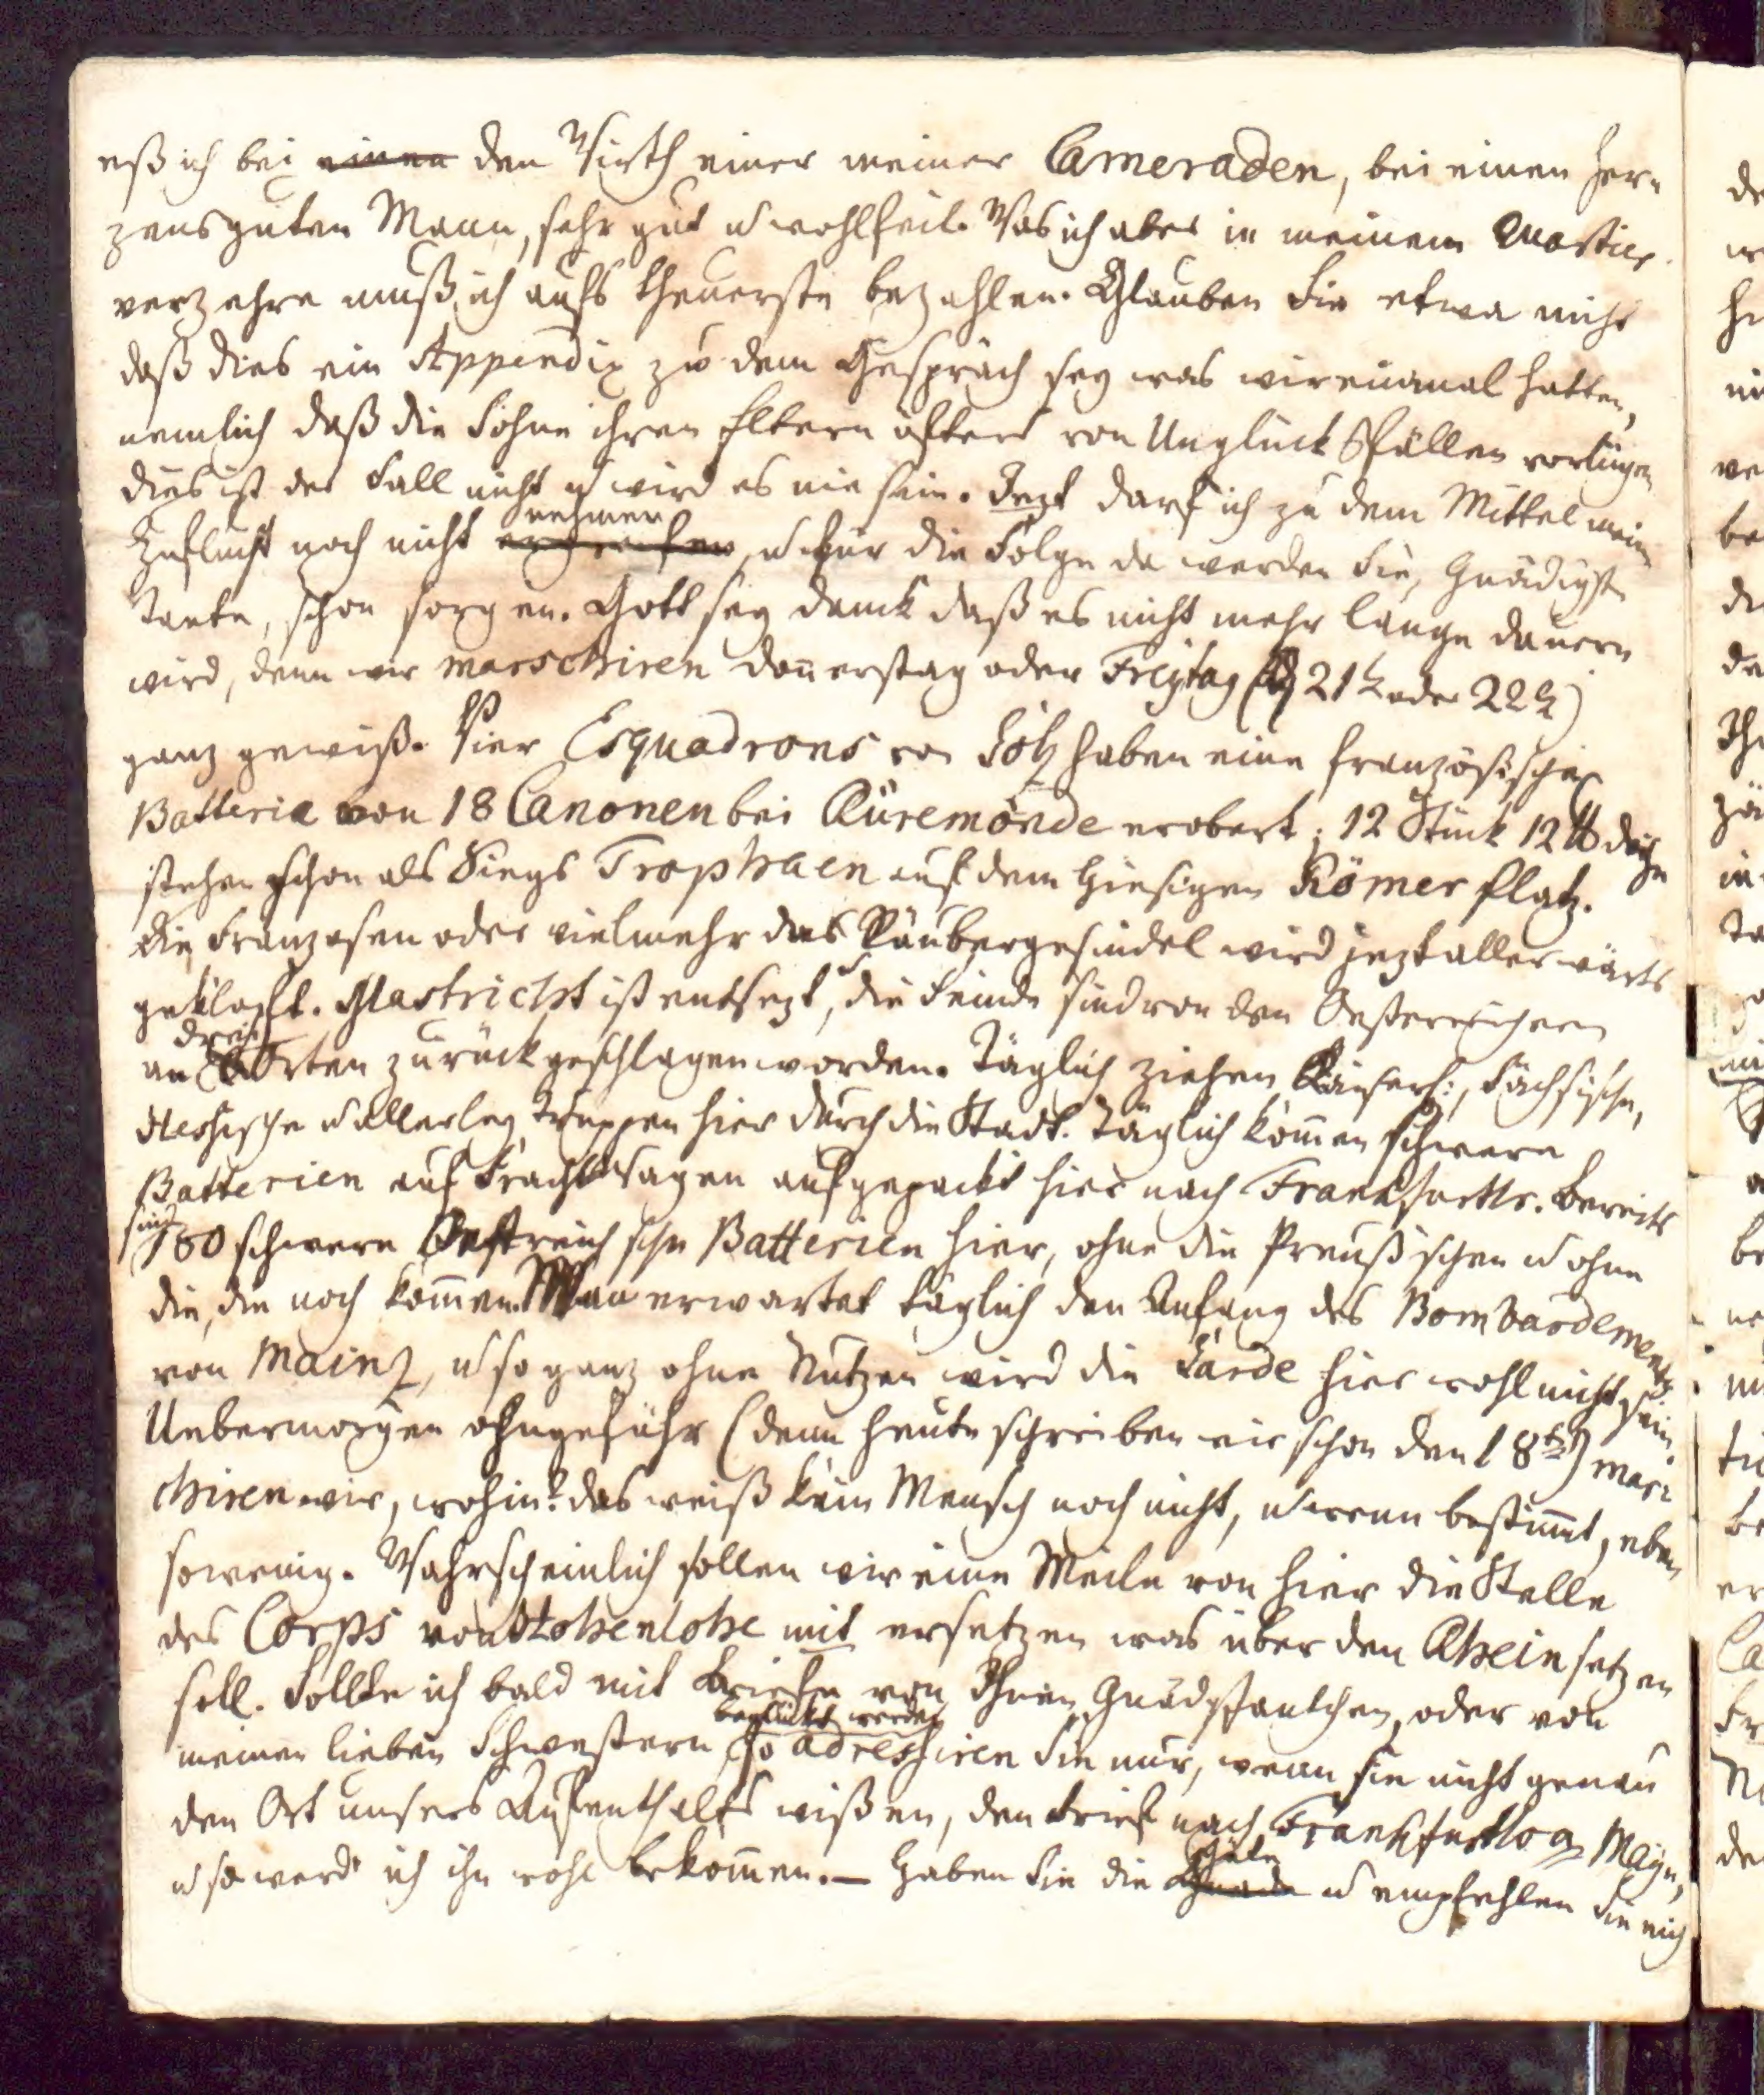 eß ich bei einen den Wirth einer meiner Cameraden, bei einen Her-
zensguten Mann, sehr gut u wohlfeil. Was ich aber in meinem Quartier
verzehre muß ich aufs theuerste bezahlen. Glauben Sie etwa nicht
daß dies ein Appendix zu dem Gespräch sey was wir einmal hatten,
nemlich daß die Söhne ihren Eltern öfters von Unglücksfällen vorlügen
dies ist der Fall nicht u wird es nie sein. Jezt darf ich zu dem Mittel meine
nehmen
Zuflucht noch nicht ergreifen, u für die Folge da werden Sie, Gnädigste
Tante, schon sorgen. Gott sey danck daß es nicht mehr lange dauern
wird, denn wir marschiren Donnerstag oder Freytag (21t oder 22t)
ganz gewiß. Vier Esquadrons von Golz haben eine französische
Batterie von 18 Canonen bei Rüremonde erobert; 12 Stück 12 ℔dige
stehen schon als Siegs Trophaen auf dem hiesigen Römer Platz.
Die Franzosen oder vielmehr das Räubergesindel wird jezt allerwärts
geklopft. Mastricht ist entsezt, die Feinde sind von den Oesterreichern
drei
an Orten zurückgeschlagen worden. Täglich ziehen Käiserl:, Sächsische,
Hessische u allerley Truppen hier durch die Stadt. Täglich komen schwere
Batterien auf Frachtwagen aufgepackt hier nach Frankfurth. Bereits
sind
180 schwere Oestreichsche Batterien hier, ohne die Preuß'schen u ohne
die, die noch komen. Man erwartet täglich den Anfang des Bombardements
von Mainz, u so ganz ohne Nutzen wird die Garde hier wohl nicht sein.
Uebermorgen ohngefähr (denn heute schreiben wir schon den 18ten) mars-
chiren wir, wohin? das weiß kein Mensch noch nicht, u wenn bestimt, eben
sowenig. Wahrscheinlich sollen wir eine Meile von hier die Stelle
des Corps von Hohenlohe mit ersetzen was über den Rhein setzen
soll. Sollte ich bald mit Briefe von Ihnen Gnädgst Tantchen, oder von
beglückt werden
meinen lieben Schwestern, so adressiren Sie nur, wenn sie nicht genau
den Ort unsers Aufenthalts wißen, den Brief nach Frankfurth am Mayn,
Güte
u so werd' ich ihn wohl bekomen. — Haben Sie die Gnade u empfehlen Sie mich